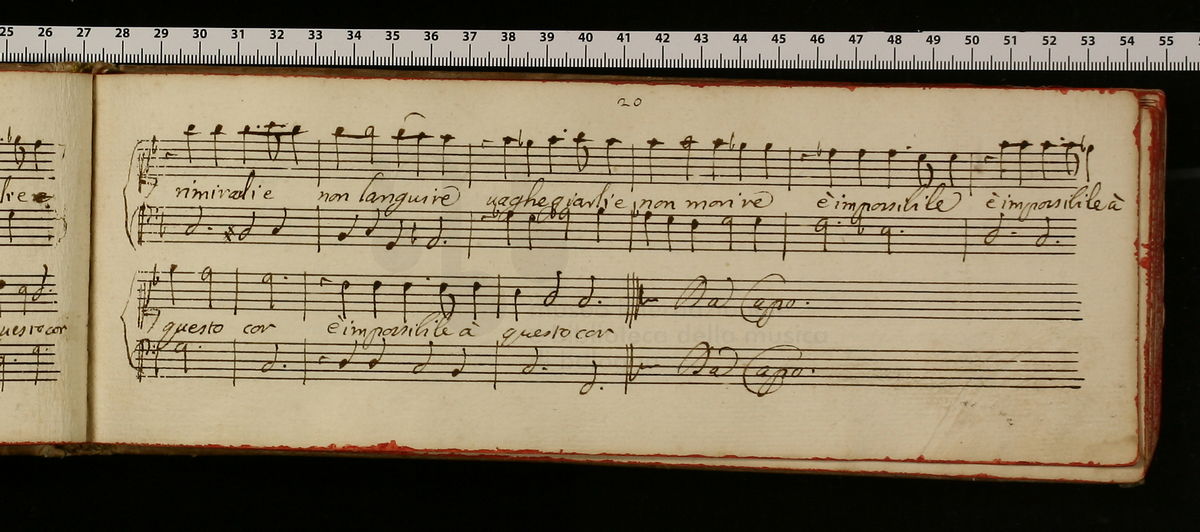 25 26 27 28 29 30 31 32 33 34 35 36 37 38 39 40 41 42 43 44 45 46 47 48 49 50 51 52 53 54 55
20
rimirarlie non languire vaghegiarlie non morire è impossibile è impossibile à
questo cor è impossibile à questo cor Da Capo.
Da Capo.
uesto cor
della musica